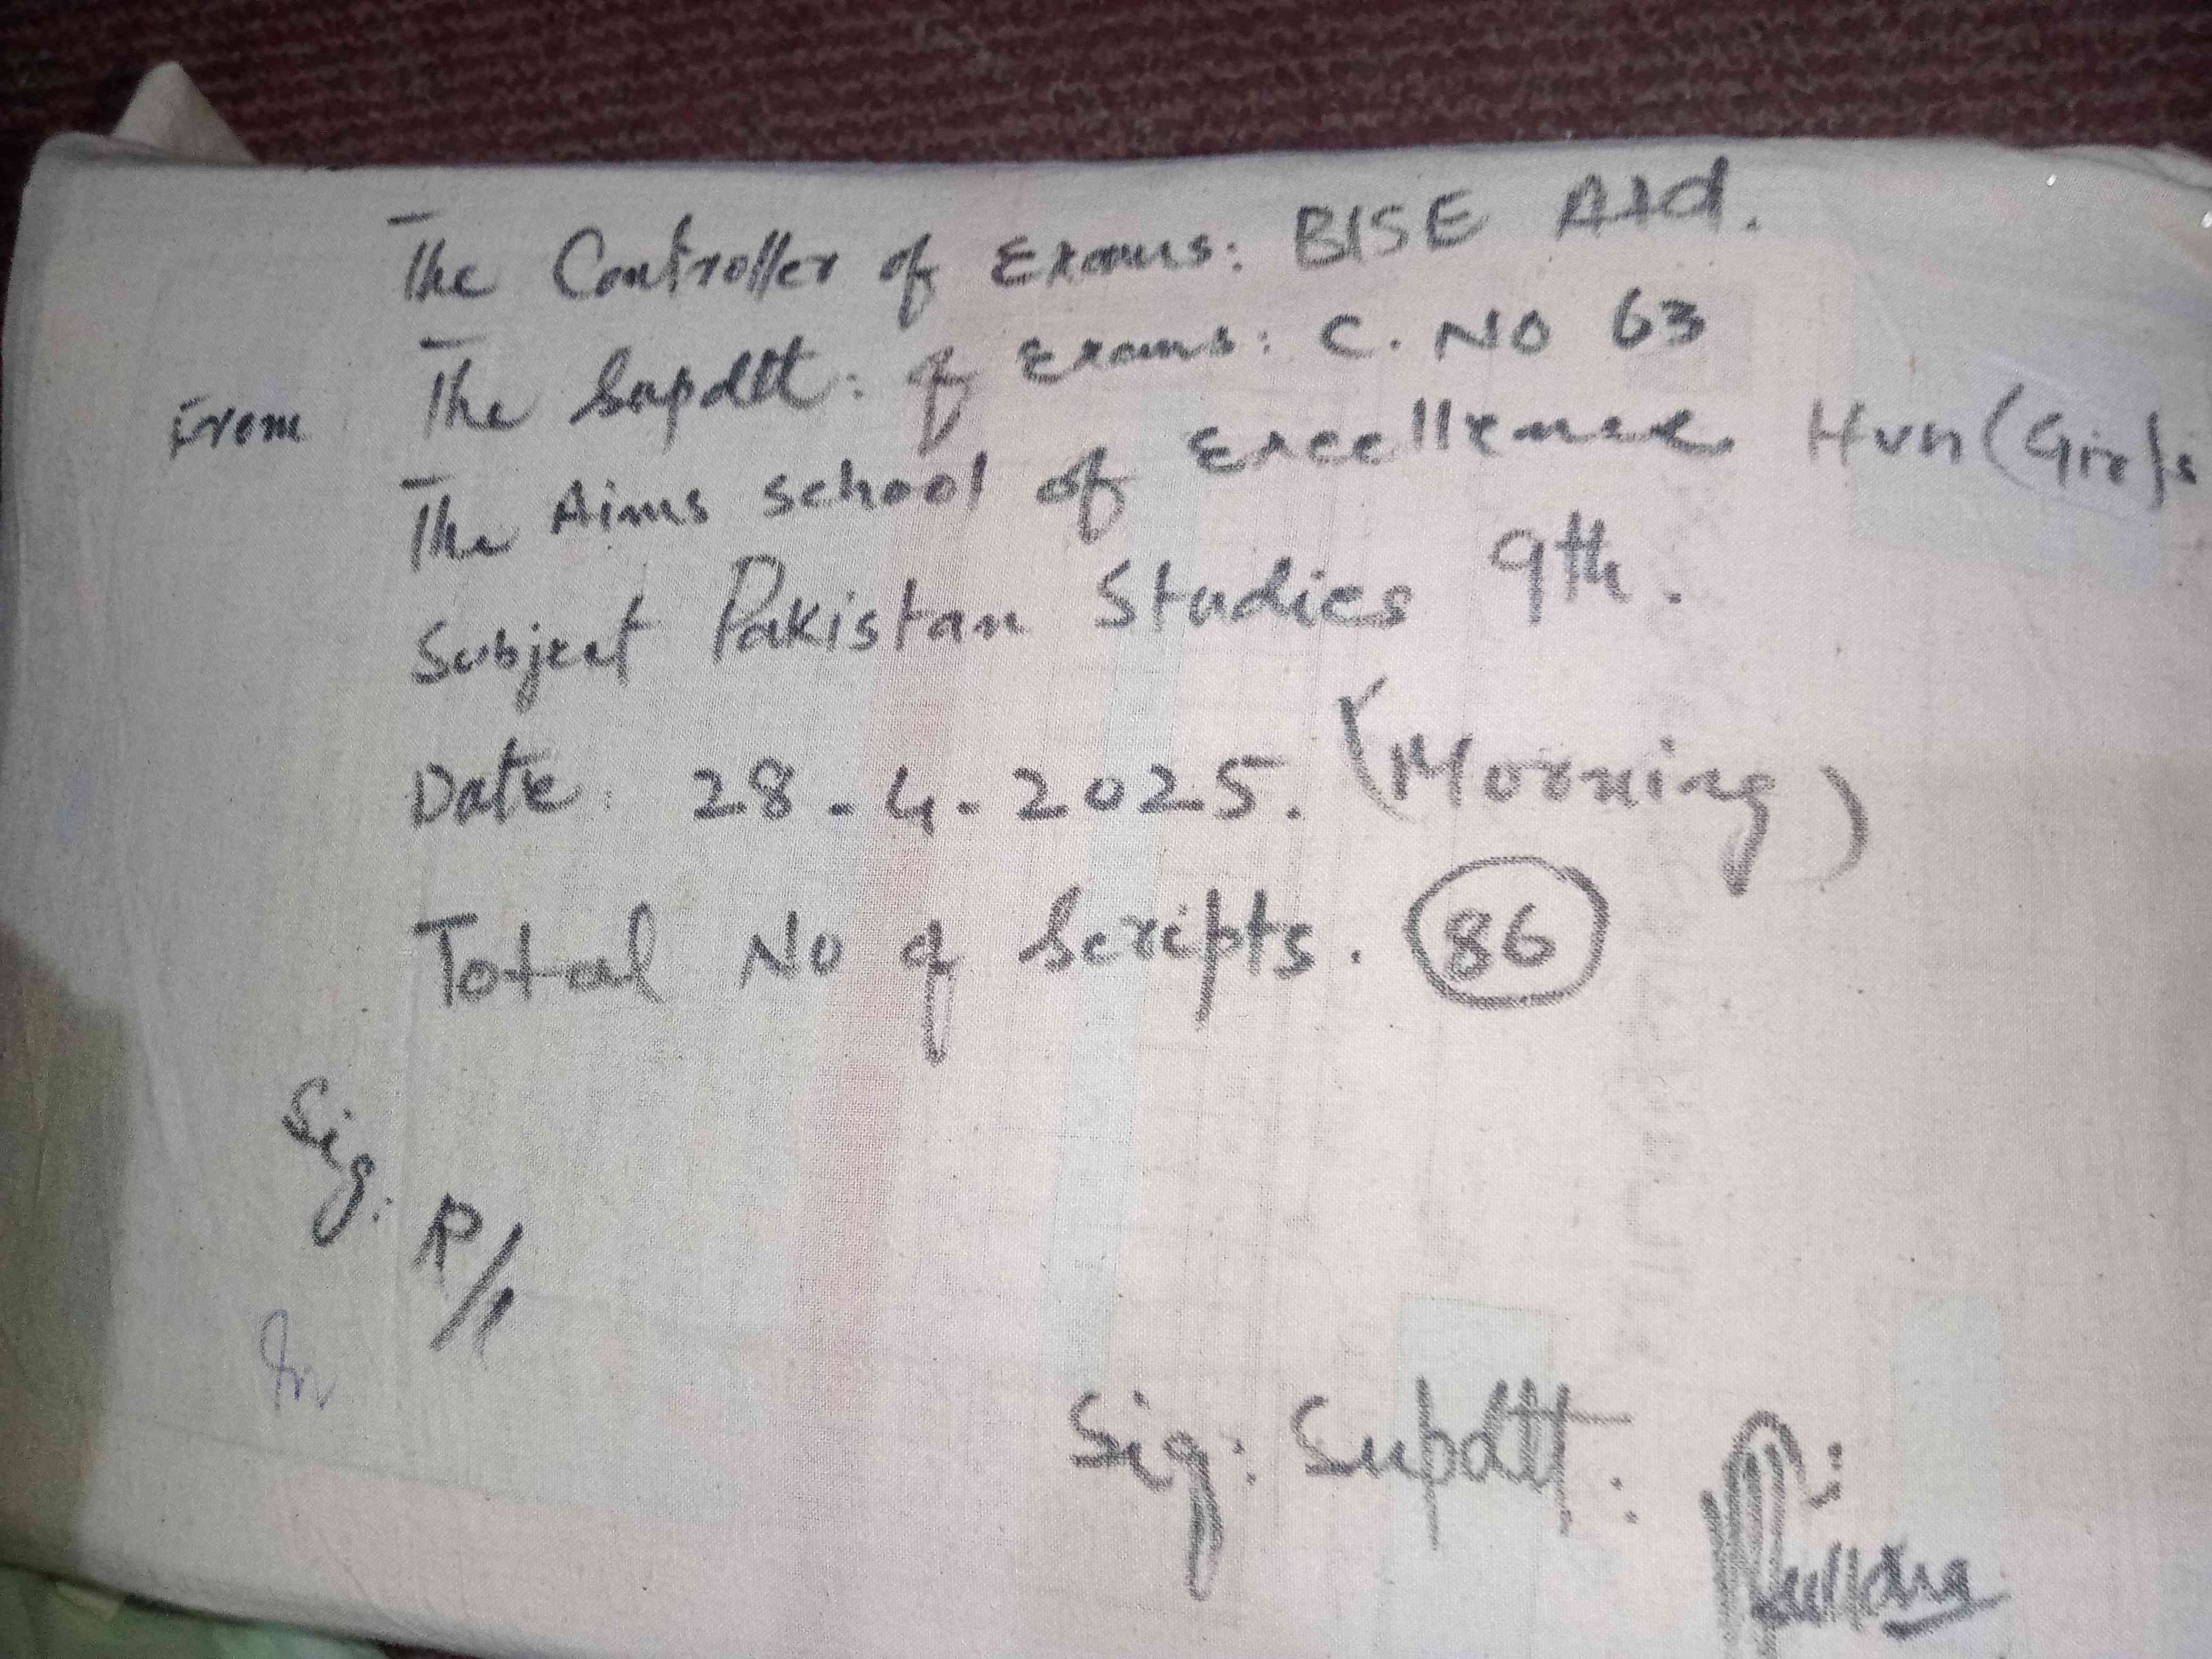 The Controller of Exams: BISE Atd.
From The Supdtt: of Exams: C. NO 63
The Aims school of Excellence Hvn (Girls
Subject Pakistan Studies 9th.
Date: 28-4-2025. (Morning)
Total No of Scripts. 86
Sig: R/I
Sig: Supdtt: